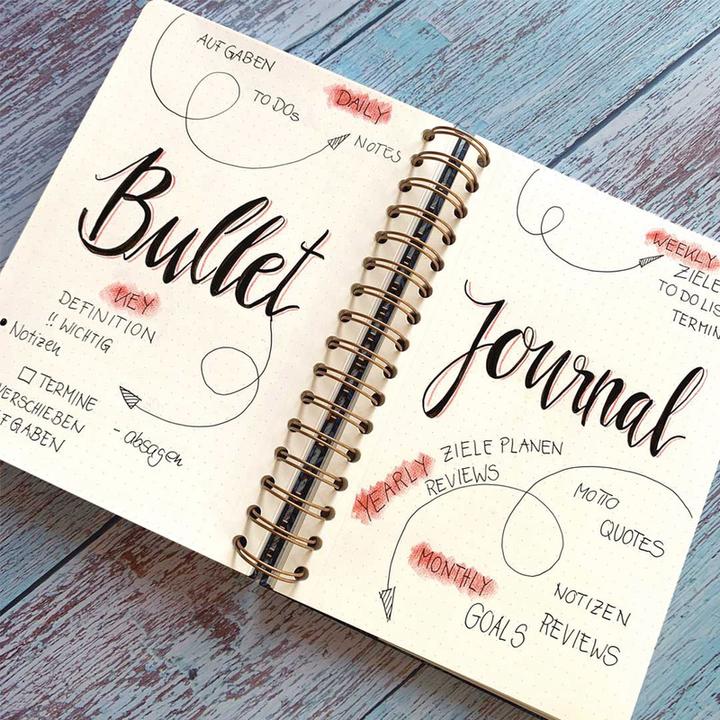 AUFGABEN
TO DOs
DAILY
NOTES
Bullet
KEY
DEFINITION
!! WICHTIG
• Notizen
☐ TERMINE
VERSCHIEBEN
FGABEN
- absagen
WEEKLY
ZIELE
TO DO LIS
TERMIN
Journal
ZIELE PLANEN
YEARLY
REVIEWS
MOTTO
QUOTES
MONTHLY
GOALS
NOTIZEN
REVIEWS